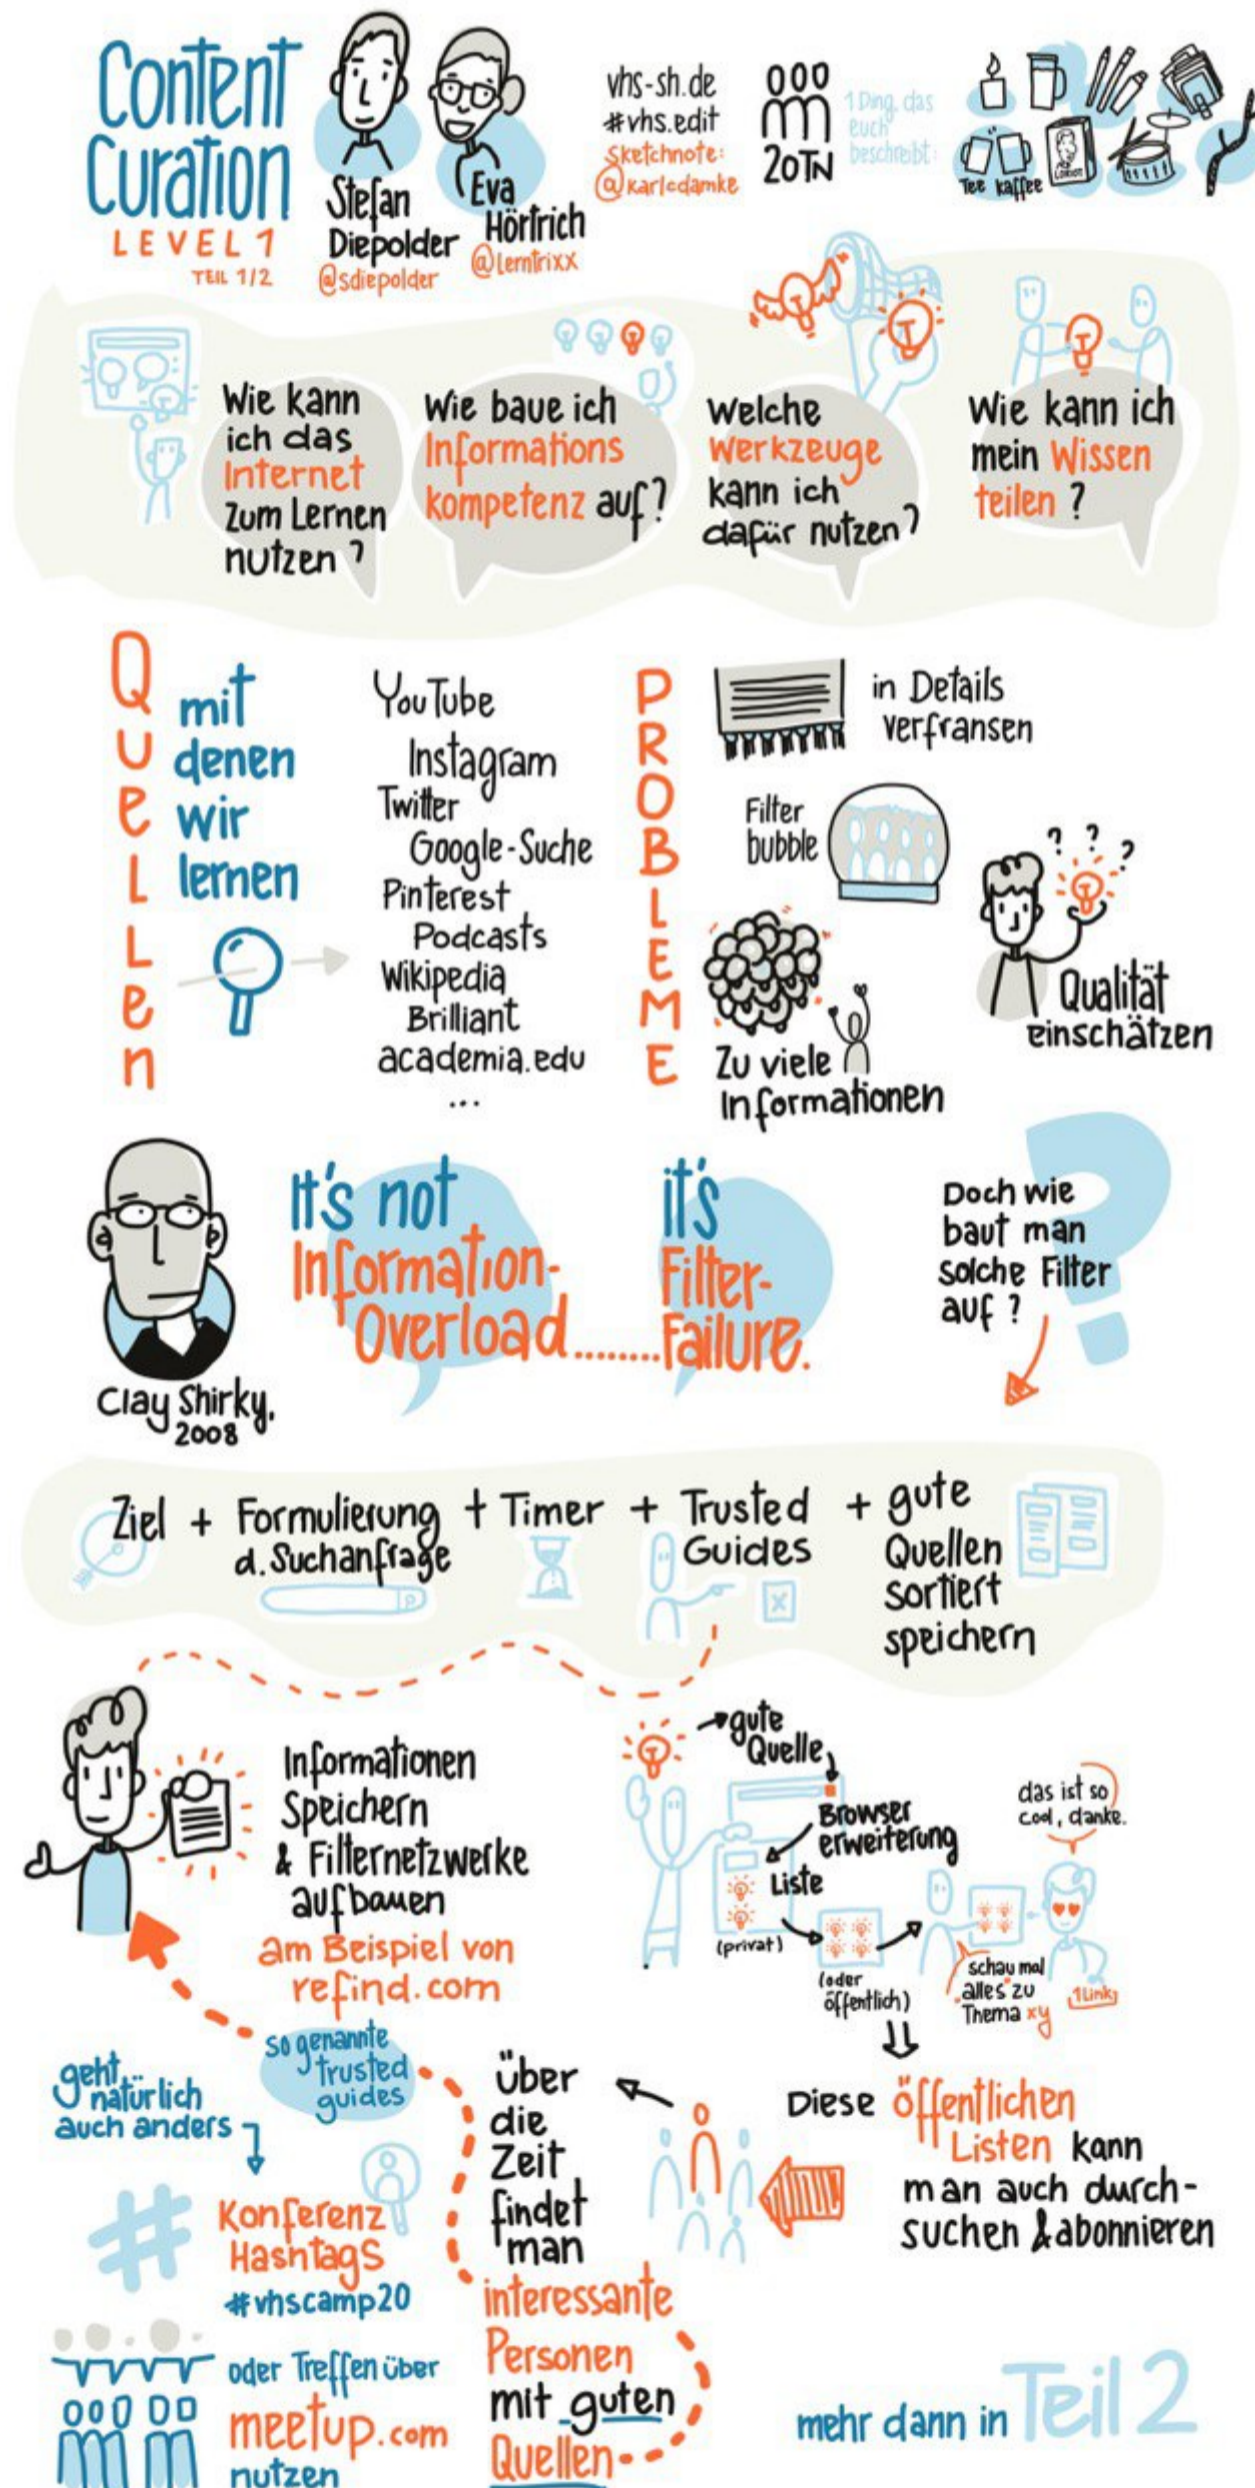 Content
Curation
LEVEL 1
TEIL 1/2
Stefan
Diepolder
@sdiepolder
Eva
Hörtrich
@Lerntrixx
vhs-sh.de
#vhs.edit
Sketchnote:
@karlcdamke
20TN
1 Ding, das
euch
beschreibt:
Tee kaffee
LORIOT
Wie kann
ich das
Internet
zum Lernen
nutzen?
Wie baue ich
Informations
kompetenz auf?
Welche
Werkzeuge
kann ich
dafür nutzen?
Wie kann ich
mein Wissen
teilen?
Quellen
mit
denen
wir
lernen
YouTube
Instagram
Twitter
Google-Suche
Pinterest
Podcasts
Wikipedia
Brilliant
academia.edu
...
PROBLEME
in Details
verfransen
Filter
bubble
? ? ?
Qualität
einschätzen
Zu viele
Informationen
Clay Shirky,
2008
It's not
Information-
Overload........
it's
Filter-
Failure.
?
Doch wie
baut man
solche Filter
auf?
Ziel + Formulierung + Timer + Trusted + gute
d. Suchanfrage
Guides
Quellen
sortiert
speichern
Informationen
Speichern
& Filternetzwerke
aufbauen
am Beispiel von
refind.com
gute
Quelle
Browser
erweiterung
Liste
(privat)
(oder
öffentlich)
schau mal
alles zu
Thema xy
das ist so
cool, danke.
1Link
Diese öffentlichen
Listen kann
man auch durch-
suchen & abonnieren
über
die
Zeit
findet
man
interessante
Personen
mit guten
Quellen
so genannte
trusted
guides
geht
natürlich
auch anders
#
Konferenz
Hashtags
#vhscamp20
oder Treffen über
meetup.com
nutzen
mehr dann in Teil 2